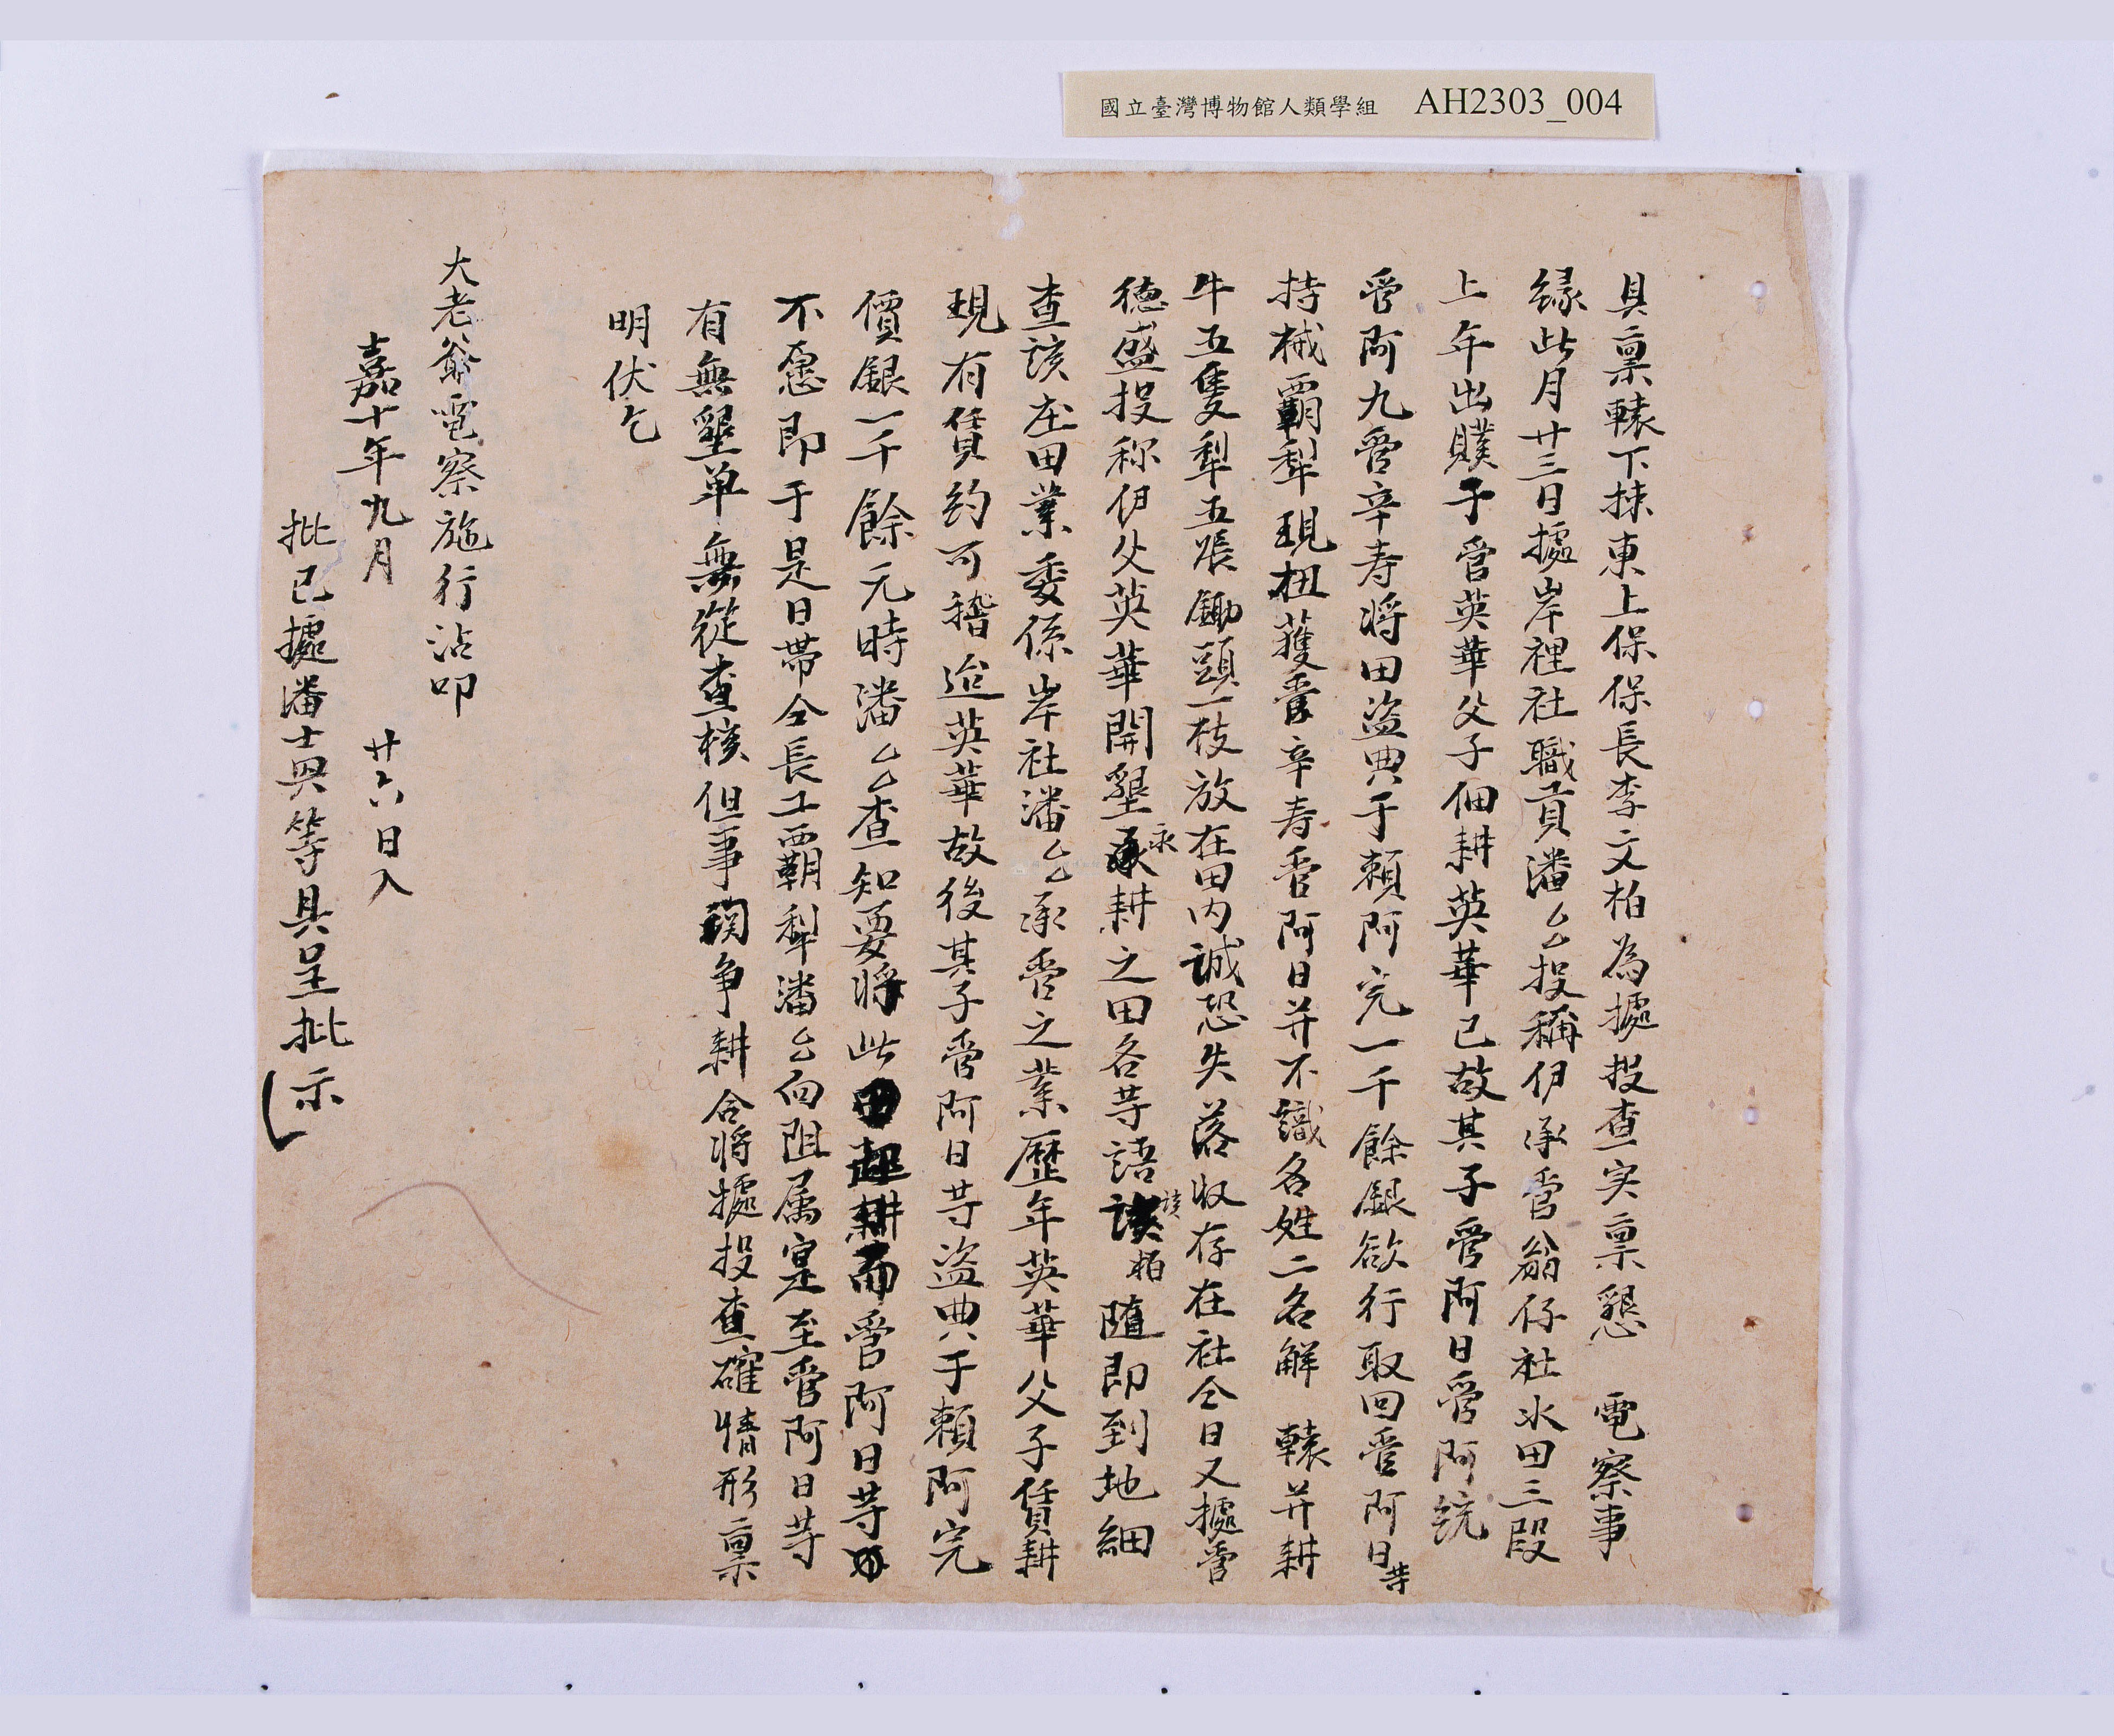 國立臺灣博物館人類學組 AH2303_004
具禀轅下揀東上保保長李文柏為據投查実禀懇 電察事
緣此月廿三日據岸裡社職貢潘厶投稱伊承管翁仔社水田三段
上年出贌于管英華父子佃耕英華已故其子管阿日管阿統
管阿九管辛寿將田盜典于賴阿完一千餘銀欲行取回管阿日等
持械霸犁現扭獲管辛寿管阿日并不識名姓二名解 轅并耕
牛五隻犁五張鋤頭一枝放在田内誠恐失落収存在社仝日又據管
德盛投称伊父英華開墾永耕之田各等語 該柏随即到地細
查該庄田業委係岸社潘厶承管之業歷年英華父子賃耕
現有賃約可稽迨英華故後其子管阿日等盜典于賴阿完
價銀一千餘元時潘厶查知要將此田起耕而管阿日等
不愿即于是日帶仝長工霸犁潘厶向阻属寔至管阿日等
有無墾单無從查核但事関争耕合將據投查確情形禀
明伏乞
大老爺電察施行沾叩
嘉十年九月 廿六日入
批已據潘士興等具呈批示